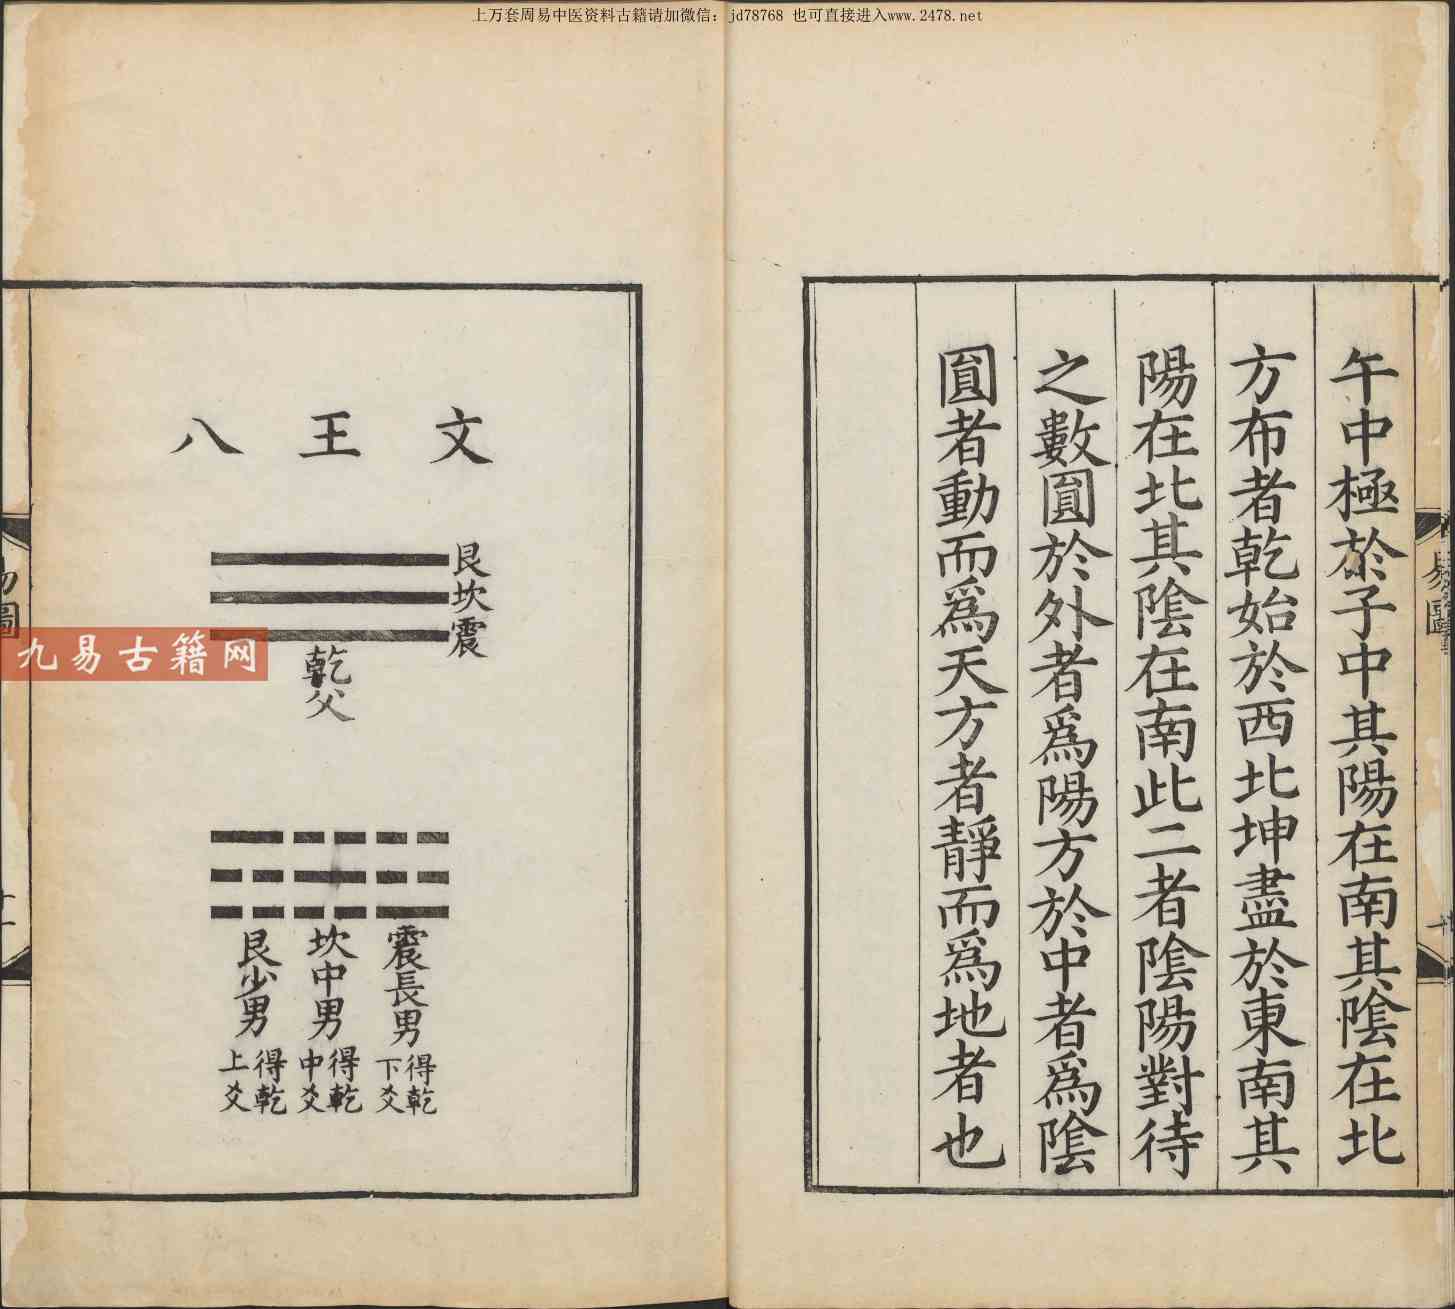 上万套周易中医资料古籍请加微信：jd78768 也可直接进入www.2478.net
午中極於子中其陽在南其陰在北
方布者乾始於西北坤盡於東南其
陽在北其陰在南此二者陰陽對待
之數圓於外者爲陽方於中者爲陰
圓者動而爲天方者靜而爲地者也
易圖
文王八
艮坎震
乾父
震長男
得乾
下爻
坎中男
得乾
中爻
艮少男
得乾
上爻
九易古籍网